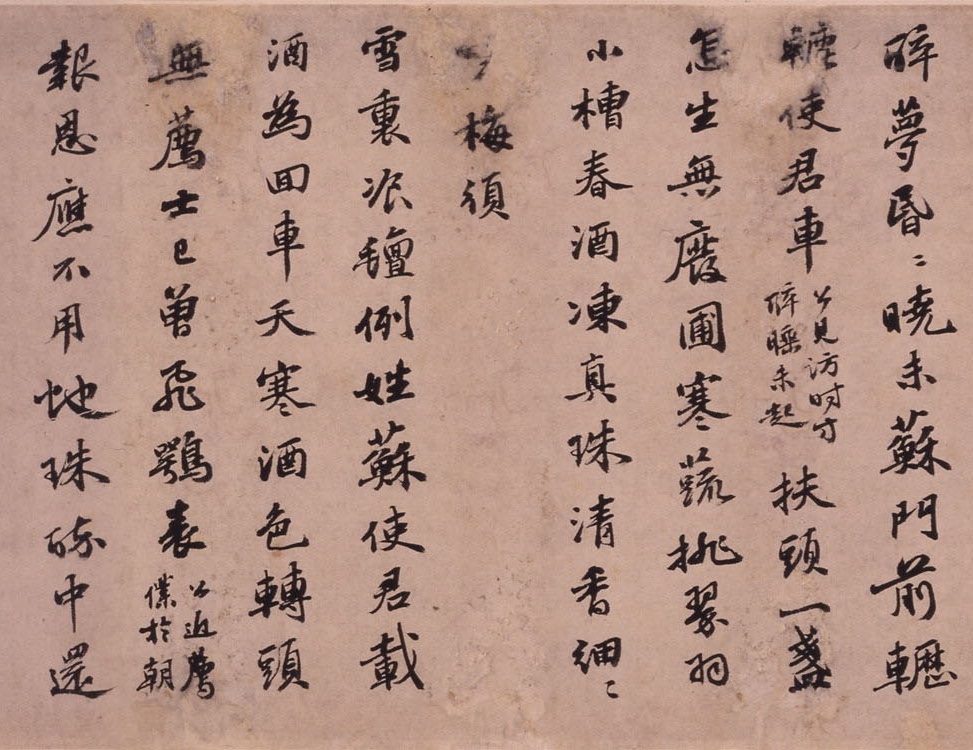 醉夢昏〻曉未蘇門前轣
轆使君車公見訪時方醉睡未起扶頭一盞
怎生無廢圃寒蔬挑翠羽
小槽春酒凍真珠清香細〻
梅須
雪裏飡氊例姓蘇使君載
酒為回車天寒酒色轉頭
無薦士已曾飛鶚表公近薦僕於朝
報恩應不用蛇珠醉中還